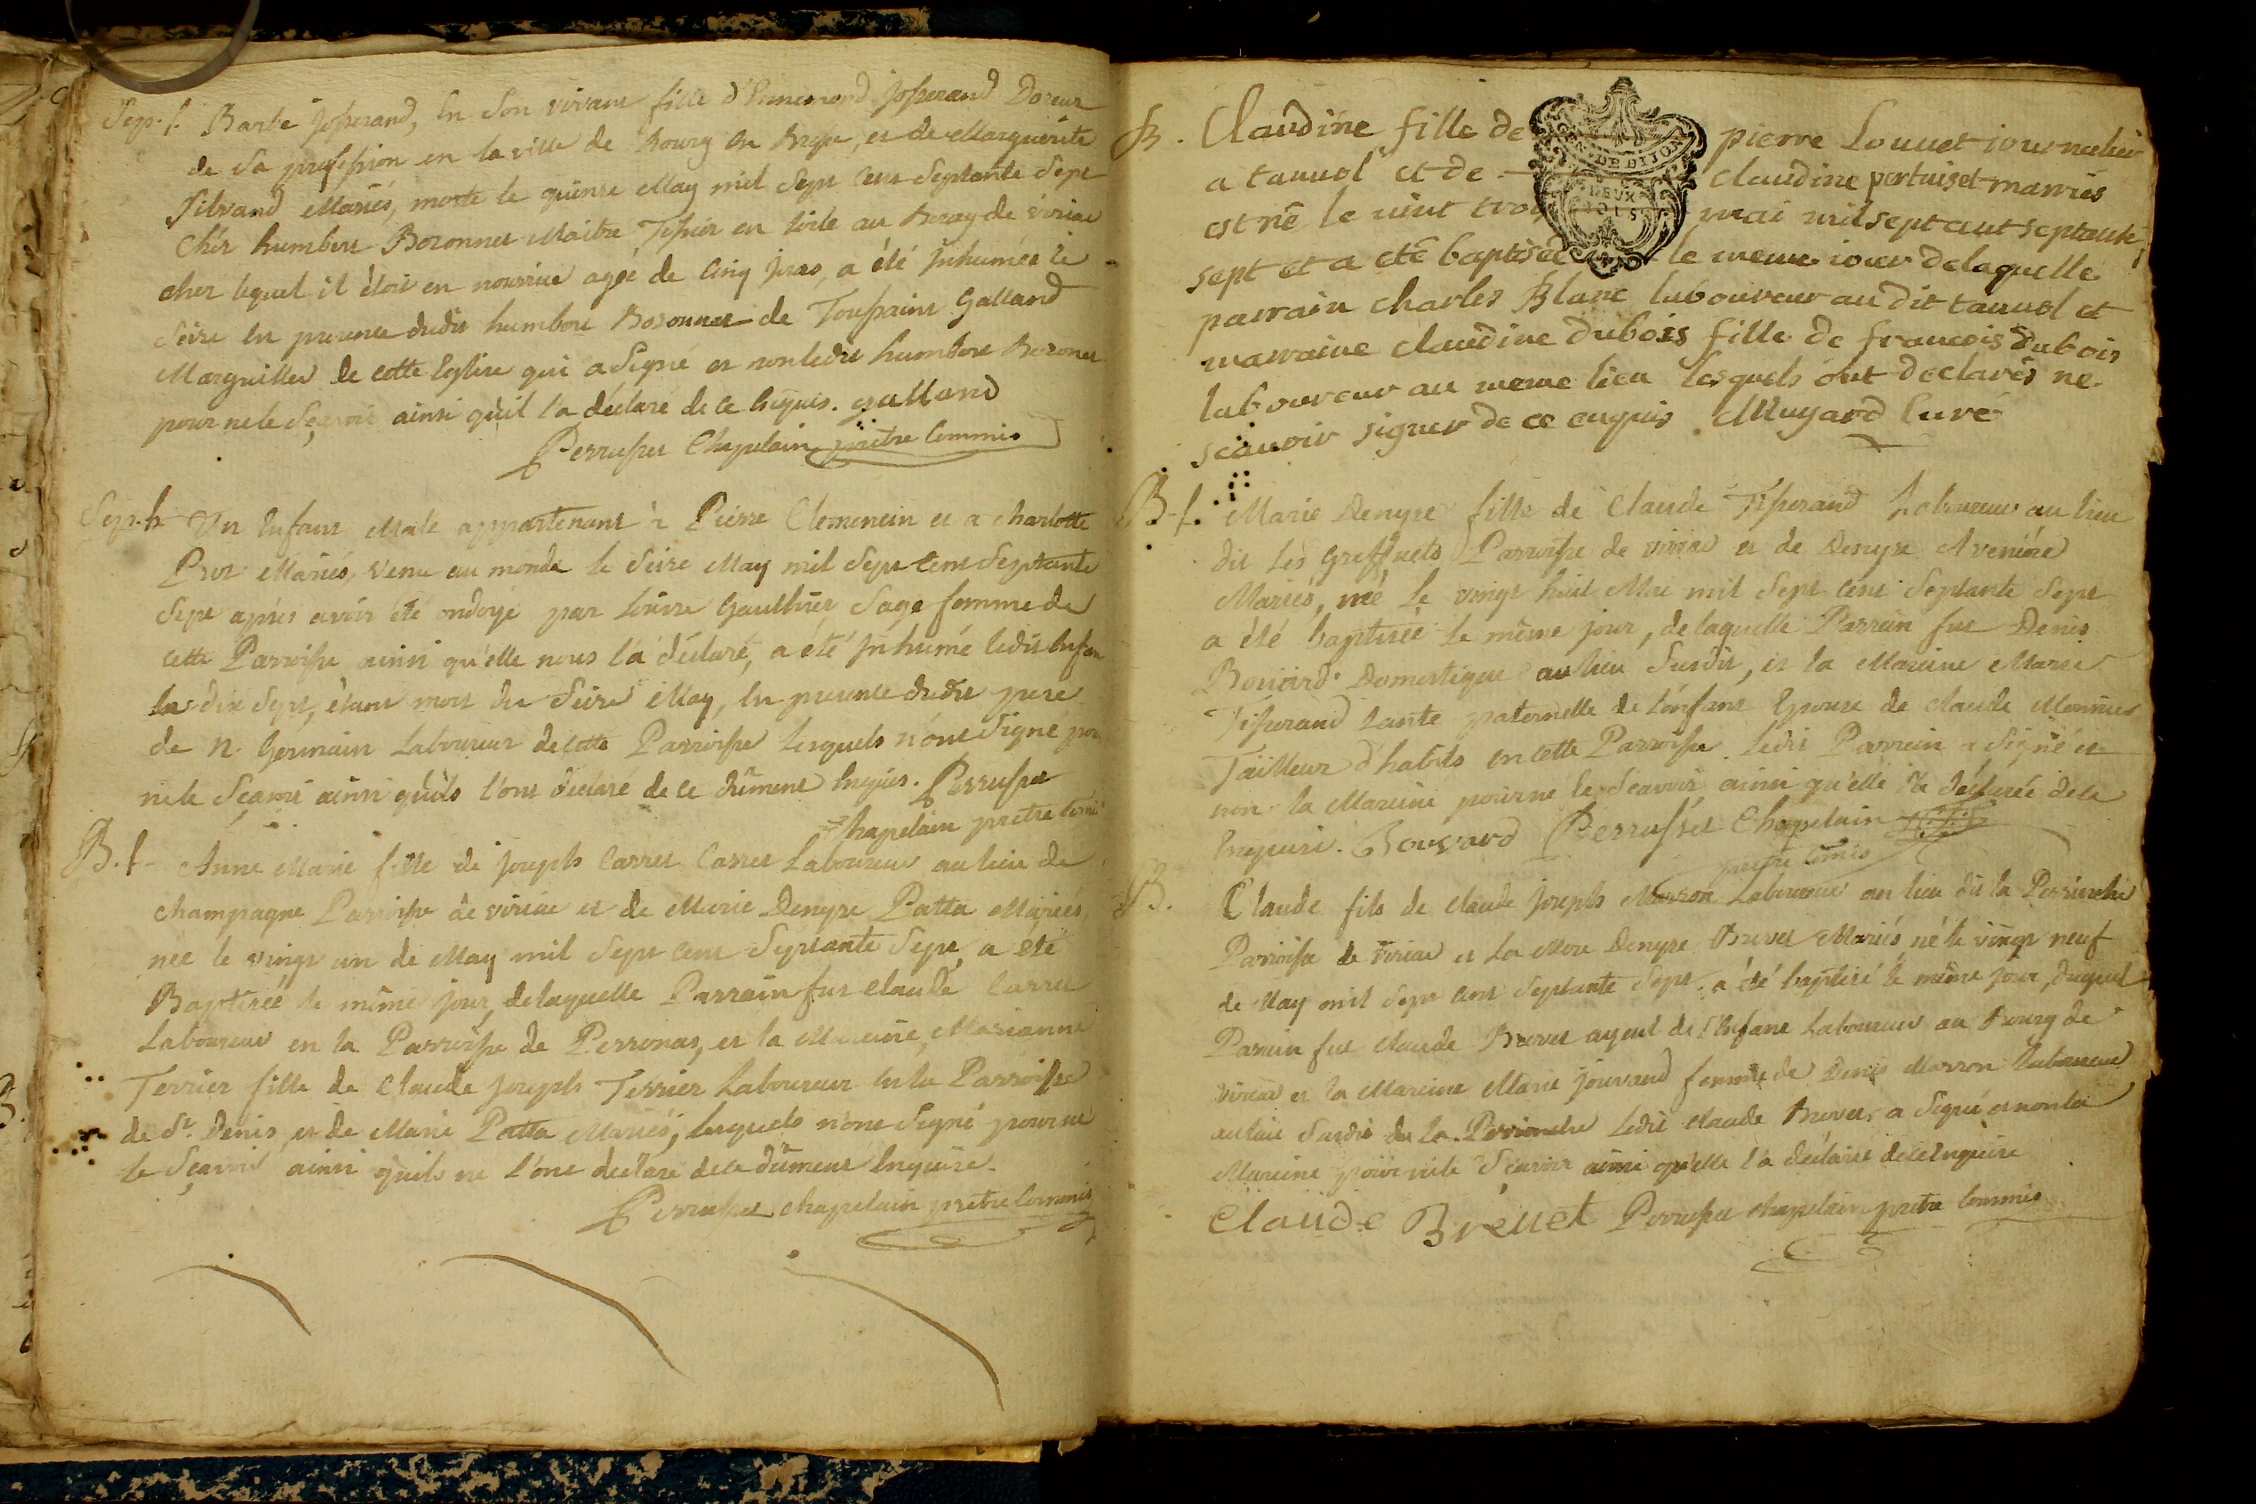 Sep. f. Barbe Josserand, en son vivant fille d'Ennemond Josserand Doreur
de sa profession en la ville de Bourg en Bresse, et de Marguerite
Silvand Mariés, morte le quinze May mil sept cent septante sept
chés humbert Bozonnet Maitre Tissier en toile au Bourg de viriac
cher lequel il étoit en nourrice agée de cinq jours, a été Inhumée le
seize en presence dudit humbert Bozonnet de Toussaint Galland
Marguiller de cette Eglise qui a signé et non ledit humbert Bozonet
pour ne le sçavoir ainsi qu'il l'a déclaré de ce Enquis. galland
Perrusset Chapelain prêtre Commis
Sep. h. Un Enfant Male appartenant à Pierre Clemencin et a charlotte
Prost Mariés, venu au monde le seize May mil sept cent septante
sept après avoir été ondoyé par Louise Gaulthier sage femme de
cette Parroisse ainsi qu'elle nous l'a déclaré, a été Inhumé ledit Enfan
le dix sept, étant mort du seize May, en presence dudit pere
de N. Germain Laboureur de cette Parroisse Lesquels n'ont signé pou
ne le sçavoir ainsi qu'ils l'ont déclaré de ce dûment Enquis. Perrusset
Chapelain prêtre Comis
B. f. Anne Marie fille de joseph Carret Carret Laboureur au lieu de
champagne Parroisse de viriac et de Marie Denyse Patta Mariés,
née le vingt un de May mil sept cent septante sept, a été
Baptisée le même jour, de laquelle Parrain fut claude Carret
Laboureur en la Parroisse de Perronas, et la Mareine, Marianne
Terrier fille de Claude joseph Terrier Laboureur en la Parroisse
de St. Denis et de Marie Patta Mariés, lesquels n'ont signé pour ne
le sçavoir ainsi qu'ils ne l'ont déclaré de ce dûment Enquise.
Perrusset chapelain prêtre Commis
B. Claudine fille de pierre Louuet iournalier
a tanuol et de claudine pertuiset marriés
est né le uint troy mai mil sept cent septante
sept et a eté baptisée le meme iour de laquelle
parrain charles Blanc laboureur au dit tanuol et
marraine claudine dubois fille de francois dubois
laboureur au meme lieu lesquels ont declarés ne
scauoir signer de ce enquis. Mugard Curé
GEN. DE DIJON
DEUX
SOLS
B. f. Marie Denyse fille de Claude Tisserand Laboureur au lieu
dit Les Greffuets Parroisse de viriac et de Denyse Aveniere
Mariés, née le vingt huit Mai mil sept cent septante sept
a été baptisée le même jour, de laquelle Parrain fut Denis
Bouvard Domestique au lieu susdit, et la Mareine Marie
Tisserand tante paternelle de l'enfant Epouse de claude Monnier
Tailleur d'habits en cette Parroisse Ledit Parrain a signé et
non la Mareine pour ne le sçavoir ainsi qu'elle l'a déclarée de ce
Enquise. Bouvard Perrusset Chapelain
prêtre Comis
B. Claude fils de claude joseph Marron Laboureur au lieu dit la Perrinche
Parroisse de viriac et La Mere Denyse Brevet Mariés né le vingt neuf
de May mil sept cent septante sept a été baptisé le même jour, duquel
Parrain fut claude Brevet ayeul de l'Enfant Laboureur au Bourg de
viriac et la Mareine Marie jouvand femme de Denis Marron Laboureur
au lieu susdit de la Perrinche Ledit claude Brevet a signé et non la
Mareine pour ne le sçavoir ainsi qu'elle l'a déclaré de ce Enquise
Claude Breuet Perrusset chapelain prêtre Commis